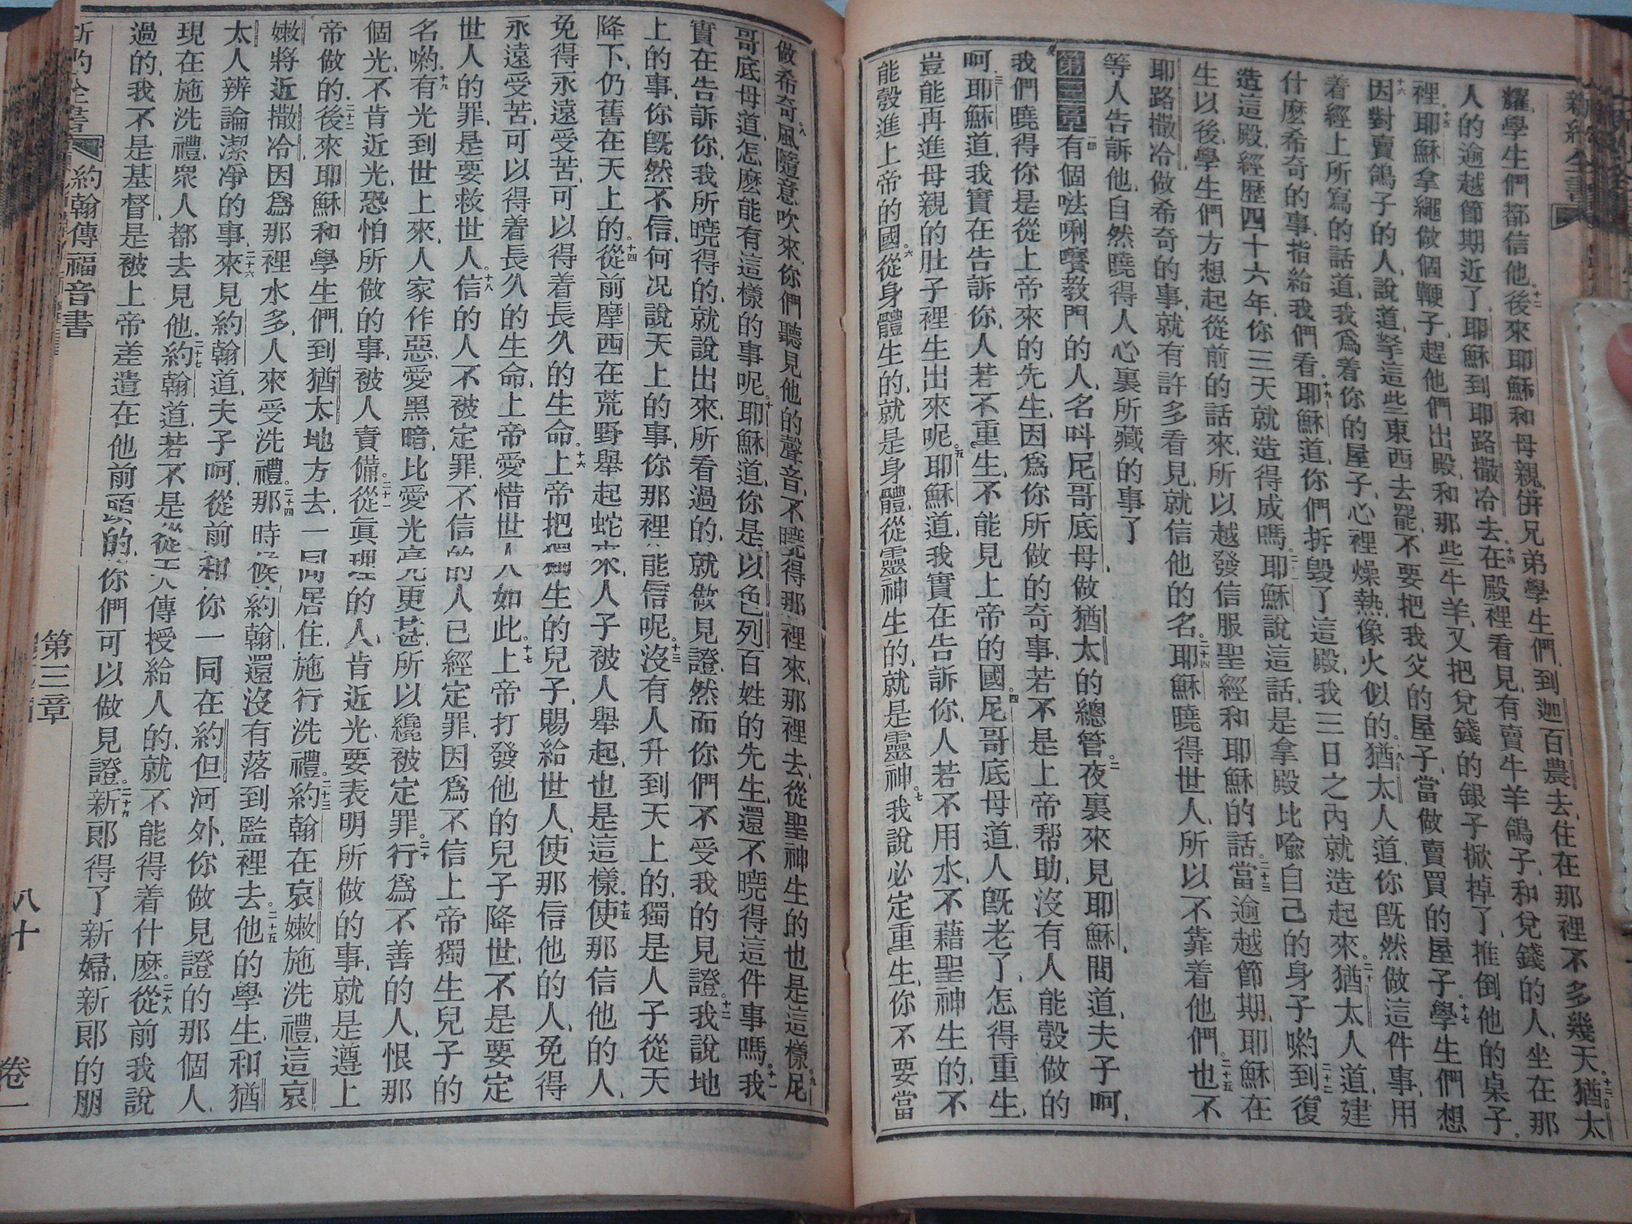 新約全書
耀、學生們都信他、十二後來耶穌和母親、倂兄弟學生們、到迦百農去、住在那裡不多幾天、十三猶太
人的逾越節期近了、耶穌到耶路撒冷去、十四在殿裡看見、有賣牛羊鴿子、和兌錢的人、坐在那
裡、十五耶穌拿繩做個鞭子、趕他們出殿、和那些牛羊、又把兌錢的銀子掀掉了、推倒他的桌子、
十六因對賣鴿子的人說道、拏這些東西去罷、不要把我父的屋子、當做賣買的屋子、十七學生們想
着經上所寫的話道、我爲着你的屋子、心裡燥熱、像火似的、十八猶太人道、你旣然做這件事、用
什麽希奇的事、指給我們看、十九耶穌道、你們拆毀了這殿、我三日之內就造起來、二十猶太人道、建
造這殿、經歷四十六年、你三天就造得成嗎、二十一耶穌說這話、是拿殿比喩自己的身子喲、二十二到復
生以後、學生們方想起從前的話來、所以越發信服聖經、和耶穌的話、二十三當逾越節期、耶穌在
耶路撒冷、做希奇的事、就有許多看見、就信他的名、二十四耶穌曉得世人、所以不靠着他們、二十五也不
等人告訴他、自然曉得人心裏所藏的事了
第三章 一有個㗂唎㘔教門的人、名呌尼哥底母、做猶太的總管、二夜裏來見耶穌、問道、夫子呵、
我們曉得你是從上帝來的先生、因爲你所做的奇事、若不是上帝帮助、沒有人能彀做的
三呵、耶穌道、我實在告訴你、人若不重生、不能見上帝的國、四尼哥底母道、人旣老了、怎得重生、
豈能再進母親的肚子裡生出來呢、五耶穌道、我實在告訴你、人若不用水、不藉聖神生的、不
能彀進上帝的國、六從身體生的、就是身體、從靈神生的、就是靈神、七我說必定重生、你不要當
做希奇、八風隨意吹來、你們聽見他的聲音、不曉得那裡來、那裡去、從聖神生的也是這樣、九尼
哥底母道、怎麽能有這樣的事呢、十耶穌道、你是以色列百姓的先生、還不曉得這件事嗎、十一我
實在告訴你、我所曉得的、就說出來、所看過的、就做見證、然而你們不受我的見證、十二我說地
上的事、你旣然不信、何況說天上的事、你那裡能信呢、十三沒有人升到天上的、獨是人子從天
降下、仍舊在天上的、十四從前摩西在荒野舉起蛇來、人子被人舉起、也是這樣、十五使那信他的人、
免得永遠受苦、可以得着長久的生命、十六上帝把獨生的兒子、賜給世人、使那信他的人、免得
永遠受苦、可以得着長久的生命、上帝愛惜世人如此、十七上帝打發他的兒子降世、不是要定
世人的罪、是要救世人、十八信的人不被定罪、不信的人已經定罪、因爲不信上帝獨生兒子的
名喲、十九有光到世上來、人家作惡、愛黑暗、比愛光亮更甚、所以纔被定罪、二十行爲不善的人、恨那
個光、不肯近光、恐怕所做的事、被人責備、二十一從眞理的人、肯近光、要表明所做的事、就是遵上
帝做的、二十二後來耶穌和學生們、到猶太地方去、一同居住、施行洗禮、二十三約翰在哀嫩施洗禮、這哀
嫩將近撒冷、因爲那裡水多、人來受洗禮、二十四那時候、約翰還沒有落到監裡去、二十五他的學生、和猶
太人辨論潔凈的事、二十六來見約翰道、夫子呵、從前和你一同在約但河外、你做見證的那個人、
現在施洗禮、衆人都去見他、二十七約翰道、若不是從天傳授給人的、就不能得着什麽、二十八從前我說
過的、我不是基督、是被上帝差遣在他前頭的、你們可以做見證、二十九新郎得了新婦、新郎的朋
新約全書 約翰傳福音書 第三章 八十 卷一